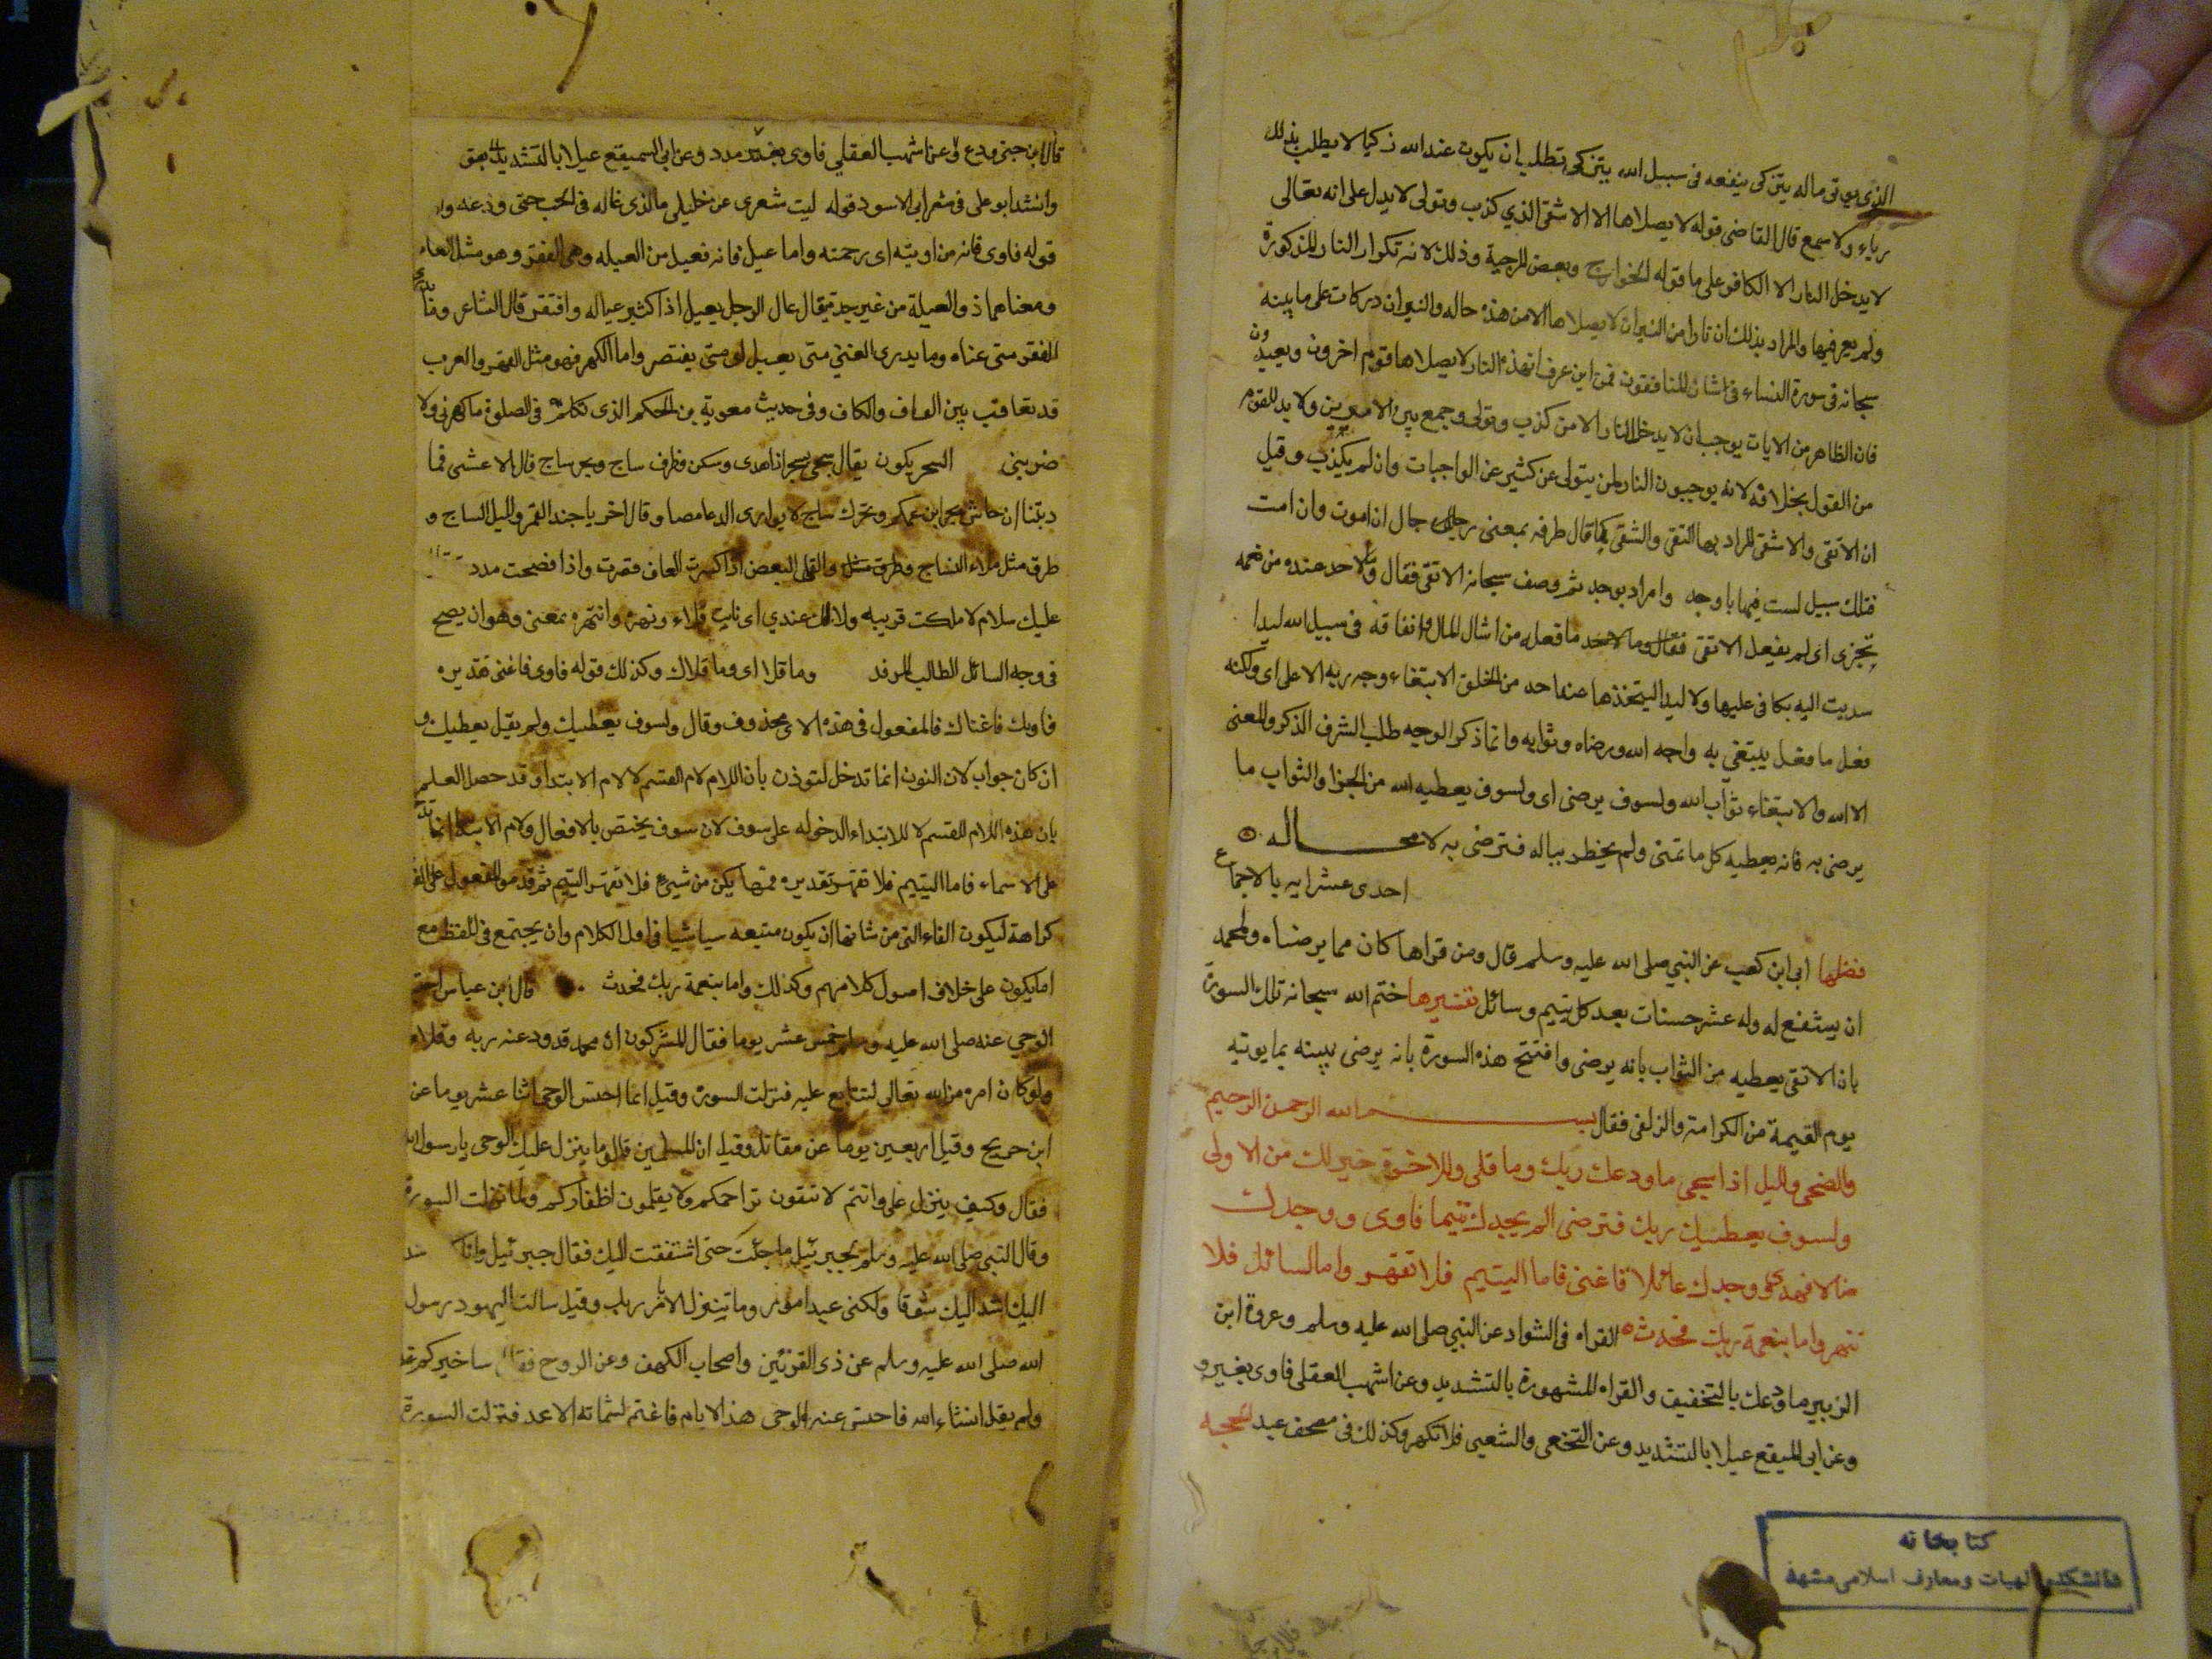 الذي يوتى ماله يتزكى ينفعه فى سبيل الله يتزكى يطلب ان يكون عند الله زكيا لا يطلب بذلك
رياء ولا سمع قال القاضى قوله لا يصلاها الا الاشقى الذي كذب وتولى لا يدل على انه تعالى
لا يدخل النار الا الكافر على ما قوله الخوارج وبعض المرجية وذلك لانه نكر النار المذكورة
ولم يعرفها والمراد بذلك ان نارا من النيران لا يصلاها الا من هذه حاله والنيران دركات على ما بينه
سبحانه فى سورة النساء فى شان المنافقون فمن اين عرف ان هذه النار لا يصلاها قوم اخرون وبعيد
فان الظاهر من الايات يوجب ان لا يدخل النار الا من كذب وتولى وجمع بين الامرين ولا بد للقوم
من القول بخلافه لانه يوجبون النار لمن يتولى عن كثير من الواجبات وان لم يكذب وقيل
ان الاتقى والاشقى المراد بهما التقى والشقى كما قال طرفه بمعنى رجال ان اموت وان امت
فتلك سبيل لست فيها باوحد وامراد بوحد ثم وصف سبحانه الاتقى فقال وما لاحد عنده من نعمه
تجزى اى لم يفعل الاتقى ما فعله من المال وانفاقه فى سبيل الله ليدا
سديت اليه يكافى عليها ولا ليدا يتخذها عند احد من الخلق الا ابتغاء وجه ربه الاعلى اى ولكنه
فعل ما فعل يبتغي به وجه الله ورضاه وثوابه وانما ذكر الوجه طلب الشرف الذكر والمعنى
الا الله والابتغاء ثواب الله ولسوف يرضى اى ولسوف يعطيه الله من الجزا والثواب ما
يرضى به فانه يعطيه كل ما تمنى ولم يخطر بباله فترضى به لا محاله
احدى عشرايه بالاجماع
فضلها ابى ابن كعب عن النبي صلى الله عليه وسلم قال ومن قراها كان مما يرضاه ولمحمد
ان يشفع له وله عشر حسنات بعد كل يتيم وسائل تفسيرها ختم الله سبحانه تلك السورة
بان الاتقى يعطيه من الثواب بانه يرضى وافتتح هذه السورة بانه يرضى نبينه بما يوتيه
يوم القيمة من الكرامة والزلفى فقال بسم الله الرحمن الرحيم
والضحى والليل اذا سجى ما ودعك ربك وما قلى وللاخرة خير لك من الاولى
ولسوف يعطيك ربك فترضى الم يجدك يتيما فاوى ووجدك
ضالا فهدى ووجدك عائلا فاغنى فاما اليتيم فلا تقهر واما السائل فلا
تنهر واما بنعمة ربك فحدث القراه فى الشواد عن النبي صلى الله عليه وسلم وعروة ابن
الزبير ما ودعك بالتخفيف والقراه المشهورة بالتشديد وعن اشهب العقلى فاوى بغير و
وعن ابى السميقع عيلا بالتشديد وعن النخعى والشعبى فلا تكهر وكذلك فى مصحف عبد الحجه
قال ابن جنى عن اشهب العقلي فاوى بغير مدد وعن ابى السميقع عيلا بالتشديد
وانشد ابو على فى شعر ابى الاسود قوله ليت شعرى عن خليلى ما الذى غاله فى الحب حتى ودعه
قوله فاوى فانه من اويته اى رحمته واما عيل فانه فعيل من العيله وهى الفقر وهو مثل العاء
ومعناهما ذو العيلة من غير جدة يقال عال الرجل يعيل اذا كثير عياله وافتقر قال الشاعر وما
الفقر متى غناه وما يدرى الغنى متى يعيل اى متى يفتقر واما الكهر فهو مثل القهر والعرب
قد تعاقب بين القاف والكاف وفى حديث معوية بن الحكم الذى تكلم فى الصلوة ما كهرنى ولا
ضربنى السجر يكون يقال سجى يسجى اذا هدى وسكن وطرف ساج وبحر ساج قال الاعشى فما
ذنبنا ان جاش بحر ابن عمكم وبحرك ساج لا يوارى الدعامصا وقال اخر يا حبذا القمر والليل الساج و
طرق مثل ملاء النساج والقلى البغض اذا كسرت القاف قصرت واذا فتحت مدد
عليك سلام لا مللت قريبه ولا لك عندي اى نايت قلاء ونهره وانتهره بمعنى وهو ان يصيح
فى وجه السائل الطالب للرفد وما قلا اى وما قلاك وكذلك قوله فاوى فاغنى تقديره
فاويك فاغناك فالمفعول فى هذه الاى محذوف وقال ولسوف يعطيك ولم يقيل يعطينك و
ان كان جواب لان النون انما تدخل لتوذن بان اللام لام القسم لا لام الابتدا وقد حصل العلم
بان هذه اللام للقسم لا للابتداء الدخوله على سوف لان سوف يختص بالافعال ولام الابتدا انما
على الاسماء فاما اليتيم فلا تقهر تقديره مهما يكن من شيئ فلا تقهر اليتيم ثم قدم المفعول على الفا
كراهة ليكون الفاء التى من شانها ان يكون متبعه شيا شيا فى اول الكلام وان يجتمع فى اللفظ مع
اما يكون على خلاف اصول كلامهم وكذلك واما بنعمة ربك فحدث قال ابن عباس احتبس
الوحي عنه صلى الله عليه وسلم خمس عشر يوما فقال المشركون ان محمد قد ودعه ربه وقلاه
ولو كان امره من الله تعالى لتتابع عليه فنزلت السورة وقيل انما احتبس الوحى اثنا عشر يوما عن
ابن جريج وقيل اربعين يوما عن مقاتل وقيل ان المسلمين قالو ما ينزل عليك الوحى يا رسول الله
فقال وكيف ينزل على وانتم لا تنقون براجمكم ولا يقلمون اظفاركم ولما نزلت السورة
وقال النبي صلى الله عليه وسلم بجبرئيل ما جئت حتى اشتقت اليك فقال جبرئيل وانا
اليك اشد اليك شوقا ولكنى عبد امور وما تتنزل الا بامر ربك وقيل سالت اليهود رسول
الله صلى الله عليه وسلم عن ذى القرنين واصحاب الكهف وعن الروح فقال ساخبركم غدا
ولم يقل انشاء الله فاحتبس عنه الوحى هذا الايام فاغتم لشماته الاعد فنزلت السورة
كتابخانه
دانشکده الهیات ومعارف اسلامی مشهد